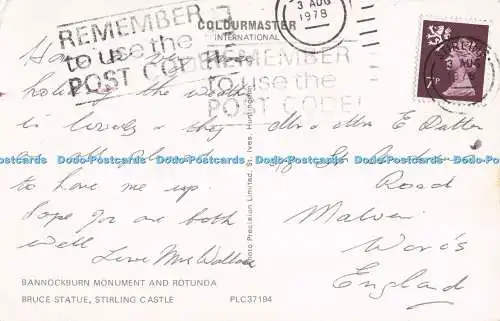 REMEMBER
to use the
POST CODE
COLOURMASTER
INTERNATIONAL
3 AUG
1978
REMEMBER
to use the
POST CODE
7 P
holiday the weather
is lovely & they
are all pleased
to have me up.
Hope you are both
well
Love Mrs Wallace
Mr & Mrs E
Road
Malvern
Worc's
England
Photo Precision Limited, St. Ives, Huntingdon
Dodo-Postcards Dodo-Postcards Dodo-Postcards Dodo-Postcards Dodo-Postcards Dodo-Postcards
BANNOCKBURN MONUMENT AND ROTUNDA
BRUCE STATUE, STIRLING CASTLE
PLC37184